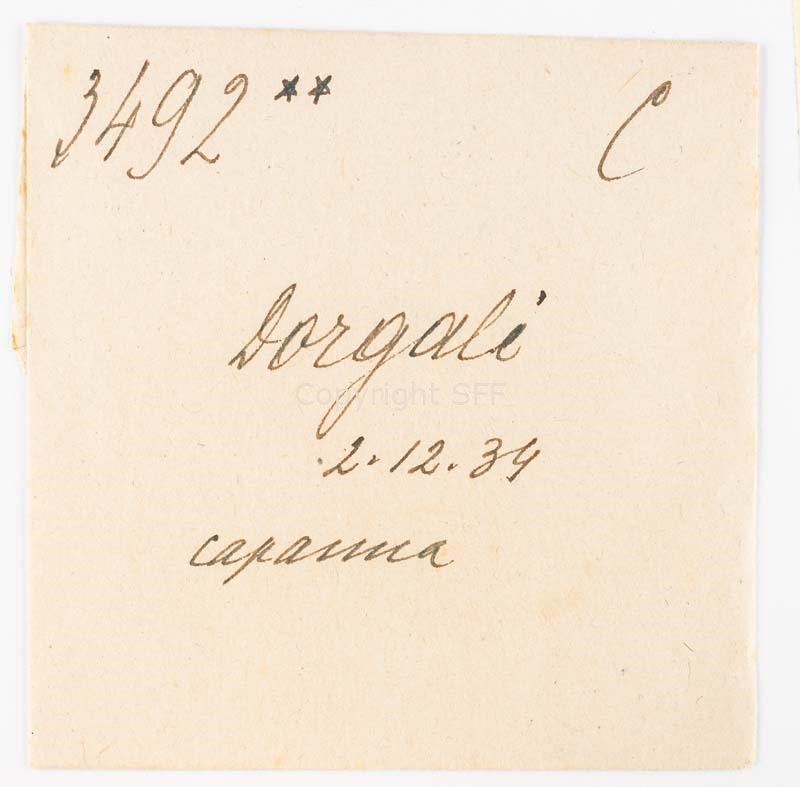 3492 ** C
Dorgali
Copyright SFF
2.12.34
capanna